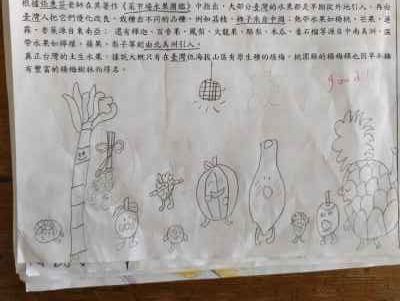 根據張惠芬老師在其著作《菜市場水果圖鑑》中指出，大部分臺灣的水果都是早期從外地引入，再由
臺灣人把它們優化改良，栽種出不同的品種，例如荔枝、柚子來自中國；熱帶水果如楊桃、芒果、蓮
霧、香蕉源自東南亞；還有釋迦、百香果、鳳梨、火龍果、酪梨、木瓜、番石榴等源自中南美洲，溫
帶水果如檸檬、蘋果、梨子等則由北美洲引入。
真正台灣的土生水果，據說大概只有在臺灣低海拔山區有原生種的楊梅，桃園縣的楊梅鎮也因早年種
有豐富的楊梅樹林而得名。
good!